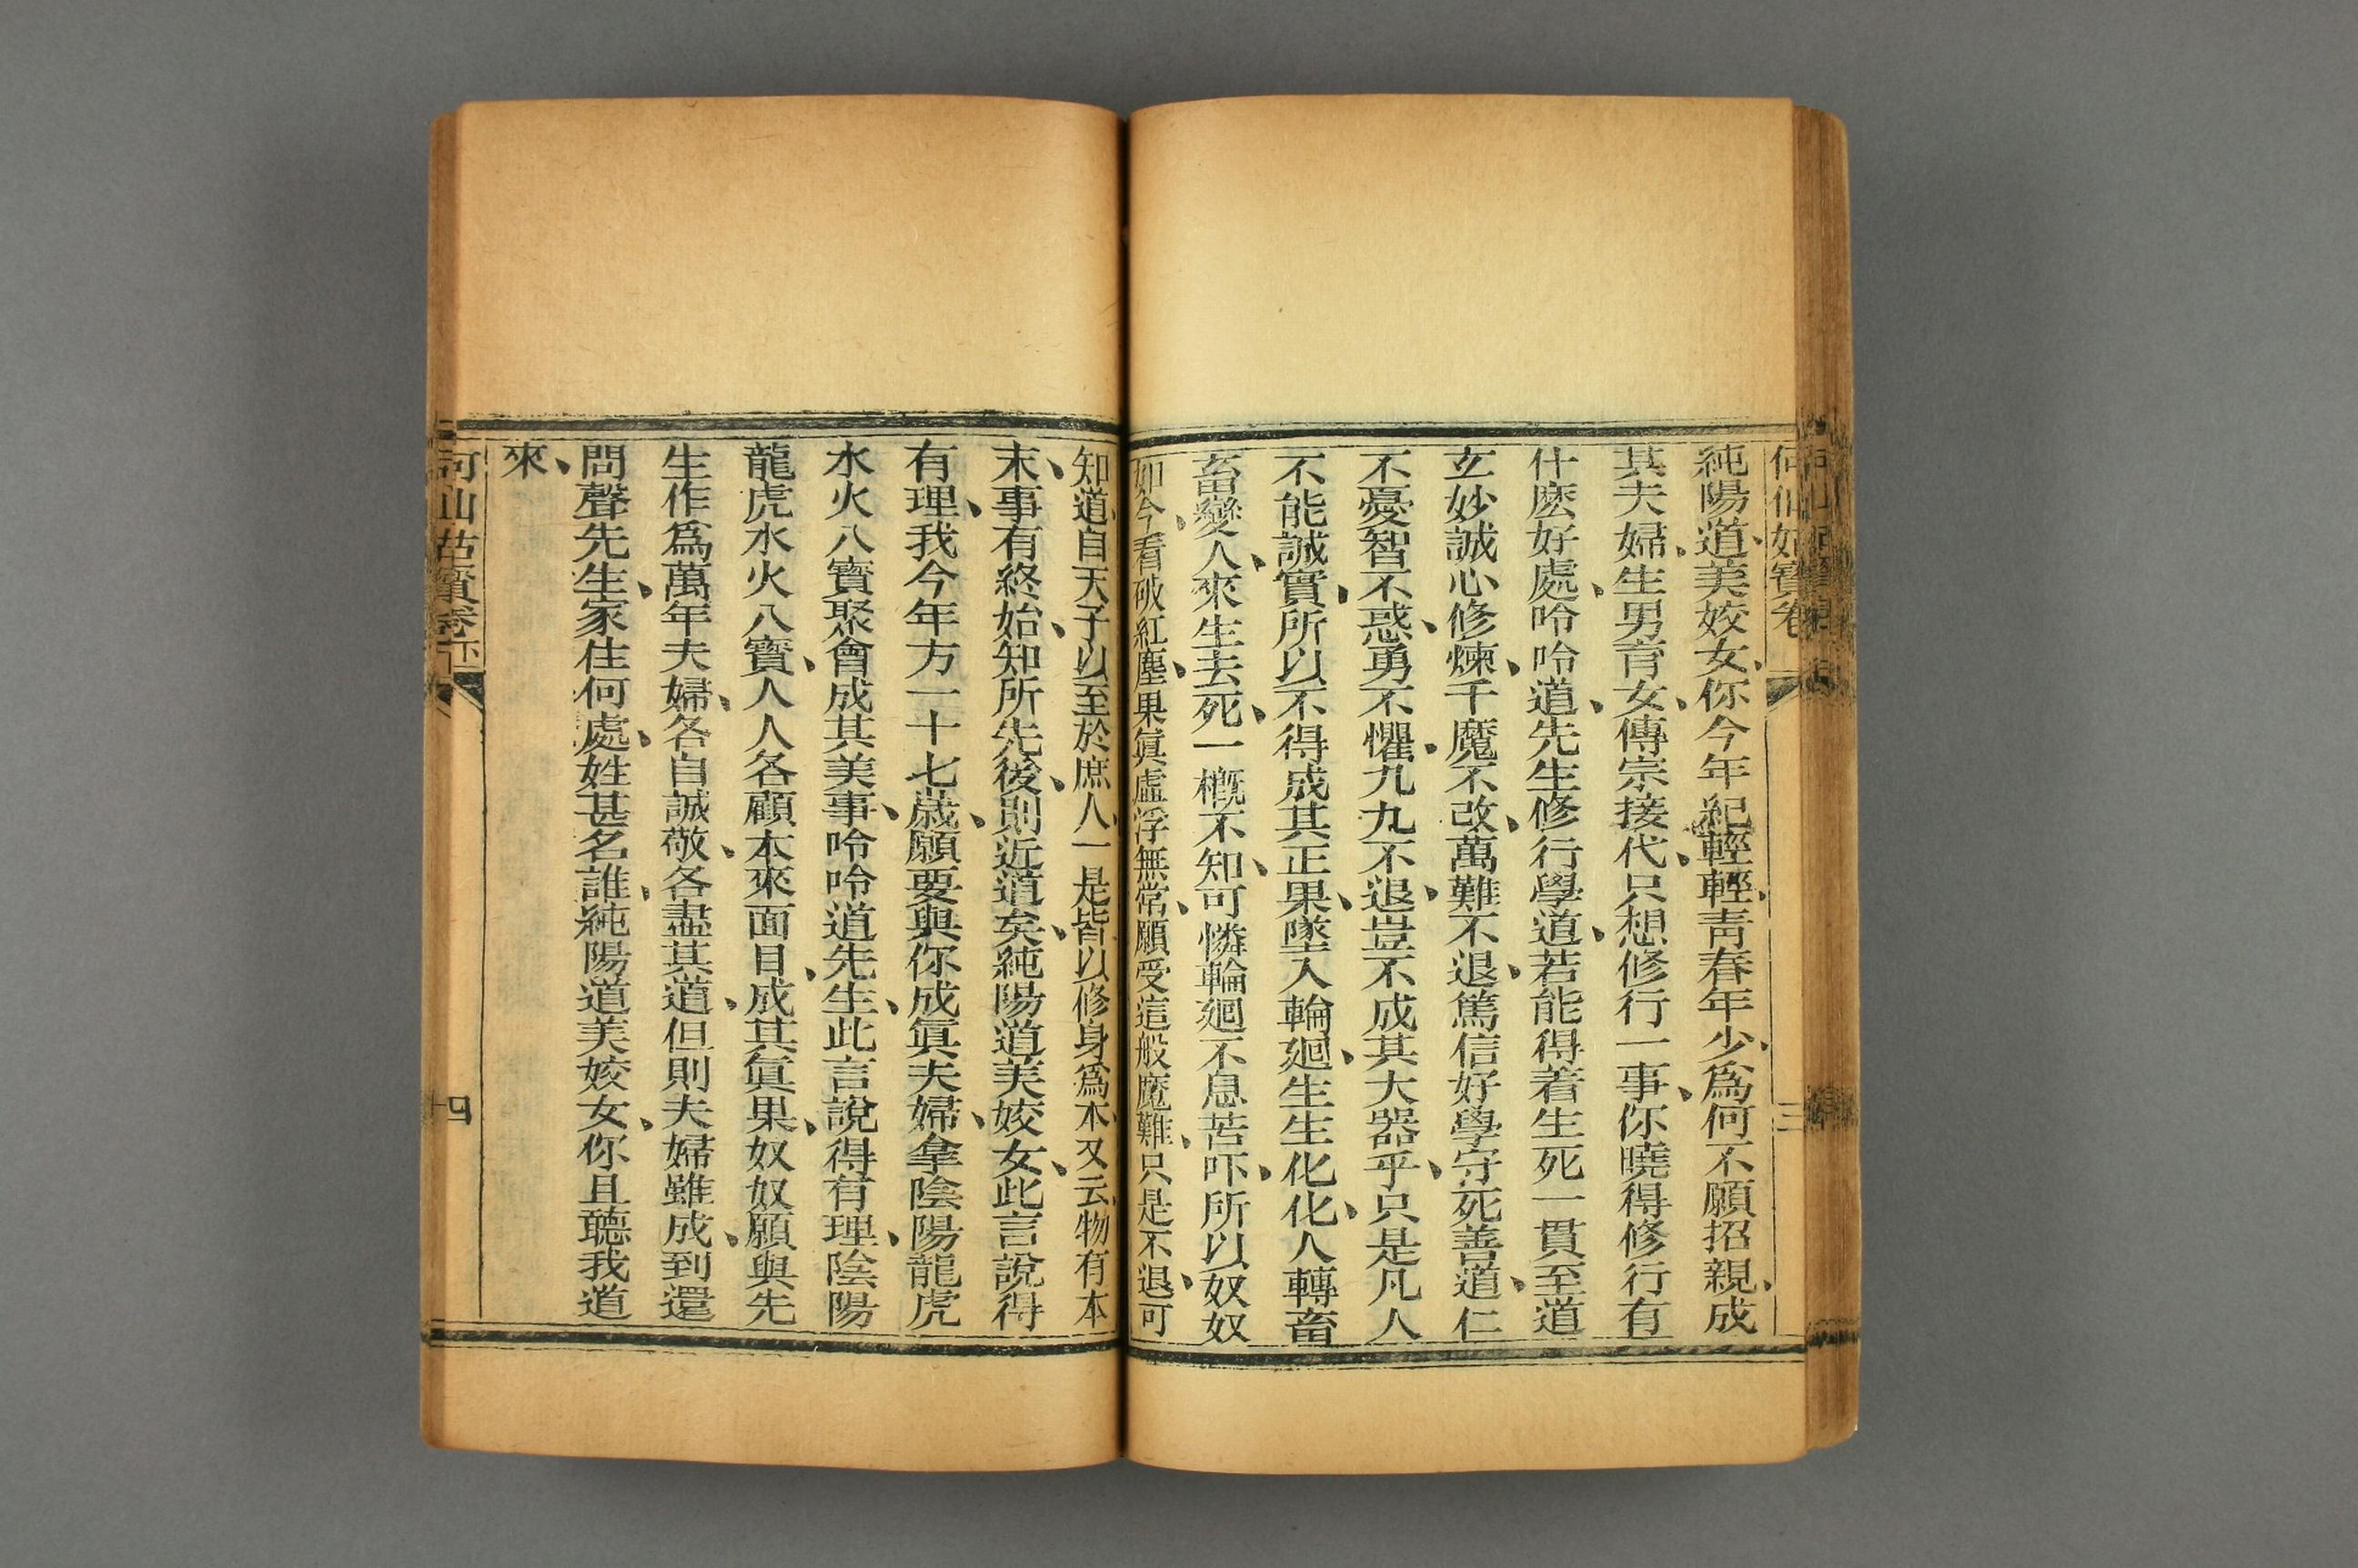 何仙姑寶卷
三
純陽道、美姣女、你今年紀輕輕、青春年少、爲何不願招親、成
其夫婦、生男育女、傳宗接代、只想修行一事、你曉得修行有
什麽好處、唥唥道、先生修行學道、若能得着生死一貫至道
玄妙誠心修煉、千魔不改、萬難不退、篤信好學守死善道、仁
不憂智不惑、勇不懼、九九不退、豈不成其大器乎、只是凡人
不能誠實、所以不得成其正果、墜入輪廻、生生化化、人轉畜
畜變人、來生去死、一概不知、可憐輪廻不息苦吓、所以奴奴
如今、看破紅塵、果眞虛浮無常、願受這般魔難、只是不退、可
知道、自天子以至於庶人、一是皆以修身爲本、又云、物有本
末、事有終始、知所先後、則近道矣、純陽道美姣女、此言說得
有理、我今年方一十七歲、願要與你成眞夫婦、拿陰陽龍虎
水火八寶聚會成其美事、唥唥道先生、此言說得有理、陰陽
龍虎水火八寶、人人各顧本來面目、成其眞果、奴奴願與先
生作爲萬年夫婦、各自誠敬、各盡其道、但則夫婦雖成、到還
問聲先生、家住何處、姓甚名誰、純陽道美姣女、你且聽我道
來、
何仙姑寶卷下
十四